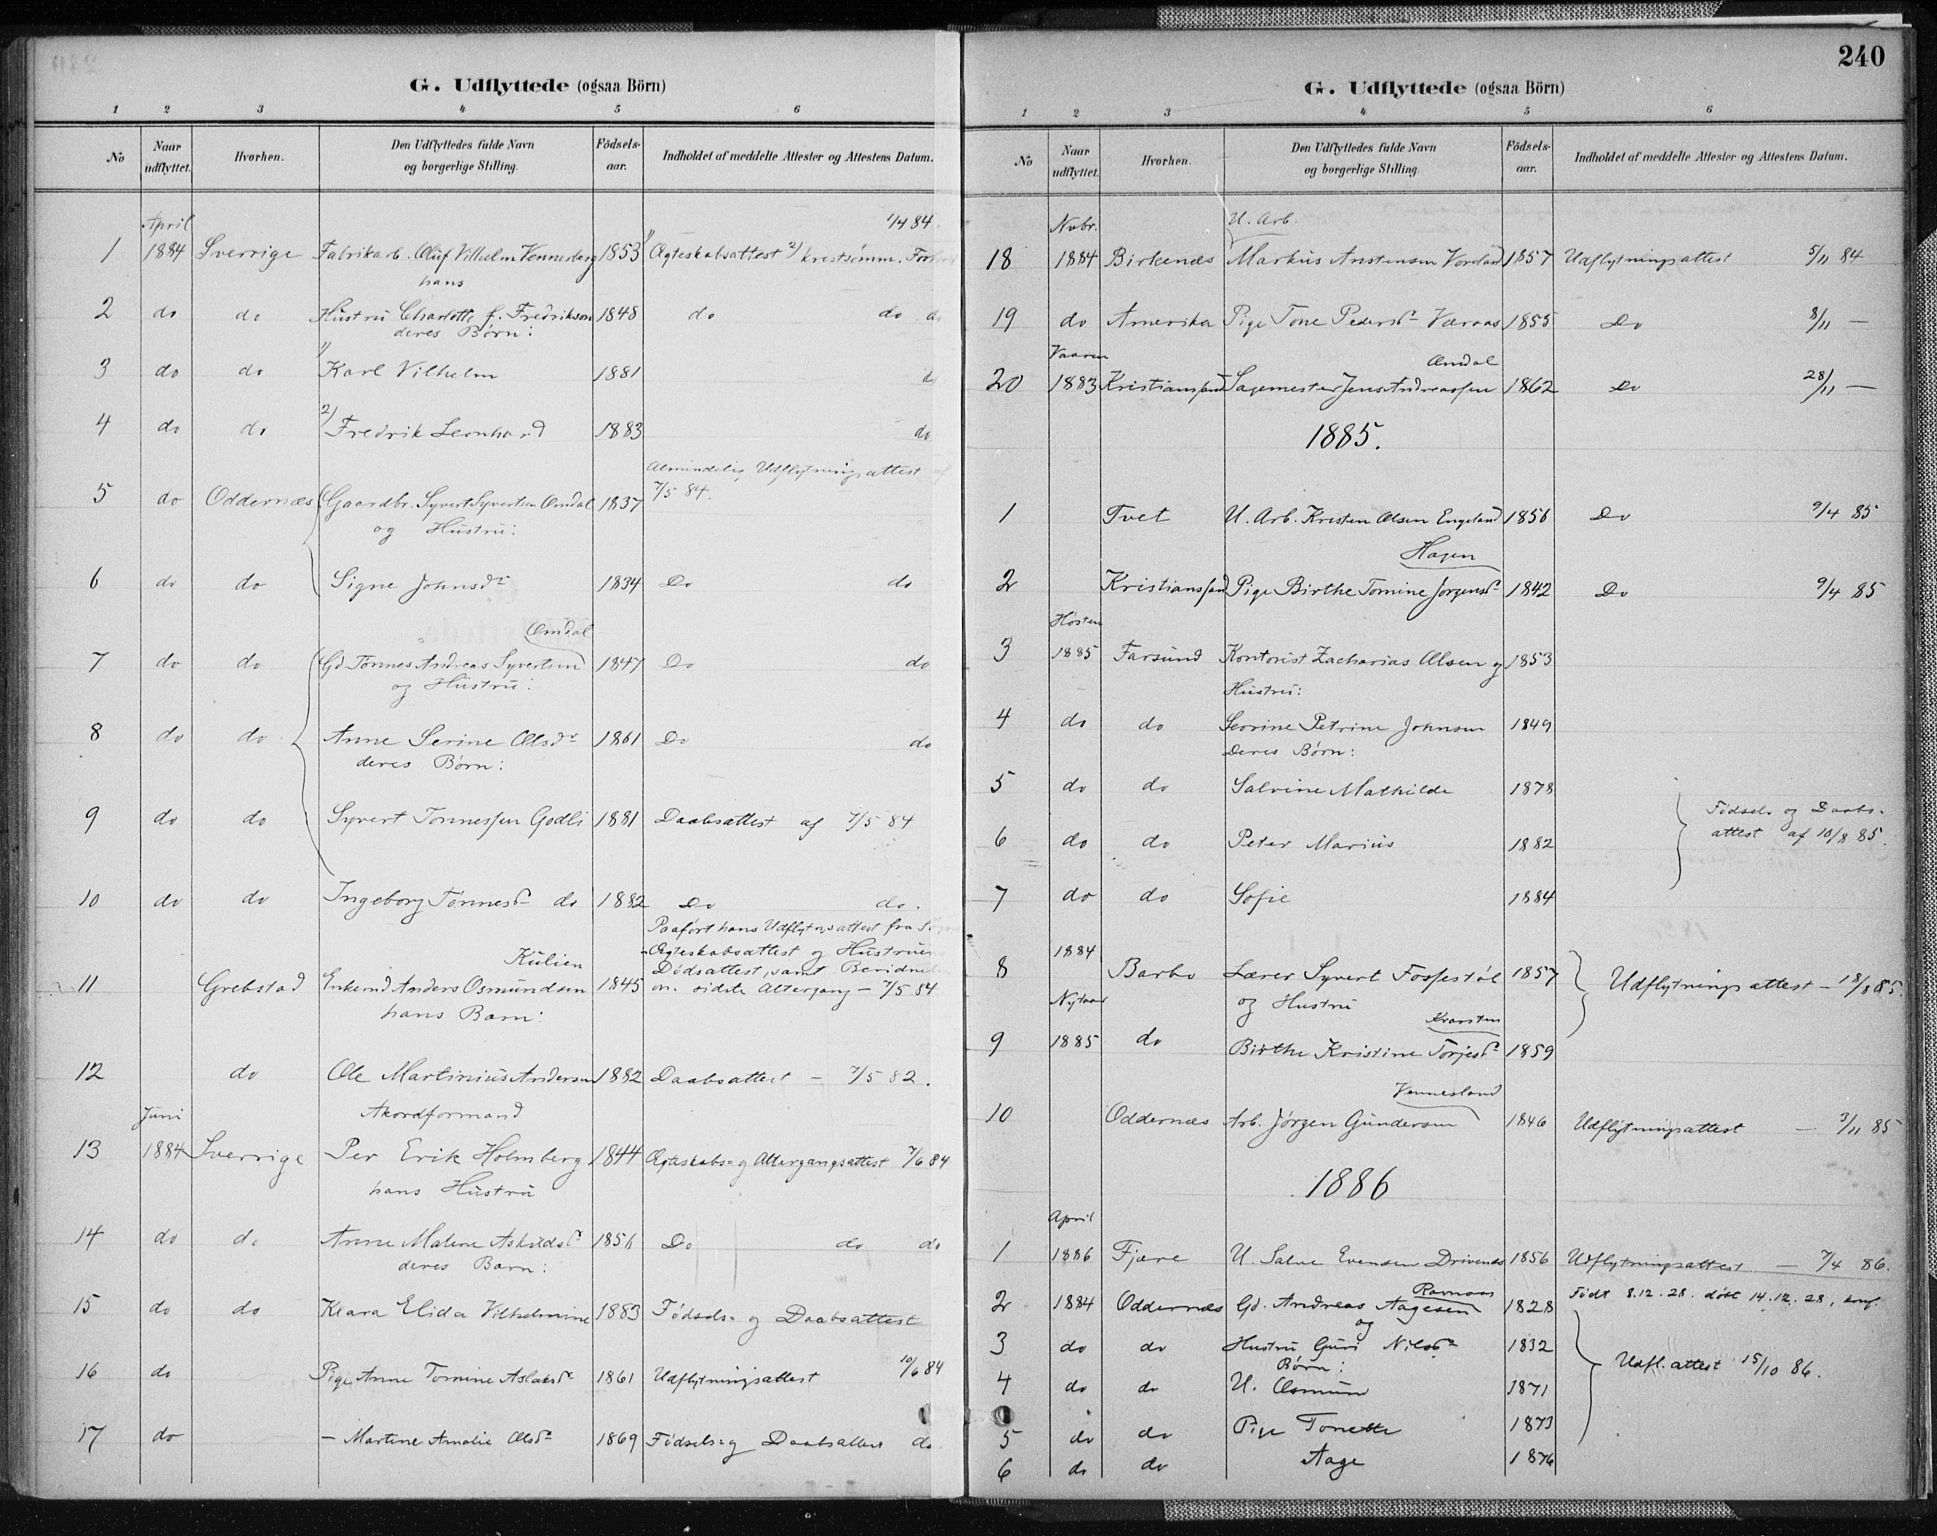 G. Udflyttede (ogsaa Börn)
1 2 3 4 5 6
No Naar udflyttet. Hvorhen. Den Udflyttedes fulde Navn og borgerlige Stilling. Födsels-aar. Indholdet af meddelte Attester og Attestens Datum.
April 1/4 84.
1 1884 Sverrige Fabrikarb. Oluf Vilhelm Vennerberg 1853 1) Ægteskabsattest 2)
hans
2 do do Hustru Charlotte f. Fredriksen 1848 do do do
deres Børn:
3 do do 1) Karl Vilhelm 1881 do
4 do do 2) Fredrik Leonhard 1883 do
Almindelig Udflytningsattest af
5 do Oddernæs Gaardbr. Syvert Syvertsen Omdal 1837 7/5 84.
og Hustru:
6 do do Signe Johnsdr 1834 Do do
Omdal
7 do do Gd. Tønnes Andreas Syvertsen 1847 Do do
og Hustru:
8 do do Anne Serine Olsdr 1861 Do do
deres Børn:
9 do do Syvert Tønnessen Godli 1881 Daabsattest af 7/5 84
10 do do Ingeborg Tønnesdr do 1882 Do do.
Paaført hans Udflytnsattest fra
Kulien Ægteskabsattest og Hustruens
Dødsattest, samt
11 Grebstad Enkemd Anders Osmundsen 1845 om sidste Altergang – 7/5 84
hans Barn:
12 do Ole Martinius Andersen 1882 Daabsattest – 7/5 82.
Juni Akordformand
13 1884 Sverrige Per Erik Holmberg 1844 Ægteskabs- og Altergangsattest 7/6 84
hans Hustru
14 do do Anne Malene Askildsdr 1856 Do do do
deres Barn:
15 do do Klara Elida Vilhelmine 1883 Fødsels- og Daabsattest
16 do Pige Anne Tomine Aslaksdr 1861 Udflytningsattest 10/6 84
17 do – Martine Amalie Olsdr 1869 Fødsels- og Daabsattest do
240
G. Udflyttede (ogsaa Börn)
1 2 3 4 5 6
No Naar udflyttet. Hvorhen. Den Udflyttedes fulde Navn og borgerlige Stilling. Födsels-aar. Indholdet af meddelte Attester og Attestens Datum.
Novbr. U. Arb.
18 1884 Birkenæs Markus Anstensen 1857 Udflytningsattest 5/11 84
19 do Amerika Pige Tone PedersdrVæraas 1855 Do 8/11 –
Vaaren Omdal
20 1883 Kristianssand Sagemester Jens Andreassen 1862 Do 28/11 –
1885.
1 Tvet U. Arb. Kristen Olsen Engeland 1856 Do 9/4 85
Hagen
2 Kristianssand Pige Birthe Tomine Jørgensdr 1842 Do 9/4 85
Høsten
3 1885 Farsund Kontorist Zacharias Olsen og 1853
Hustru:
4 do do Severine Petrine Johnsen 1849
Deres Børn:
5 do do Salvine Mathilde 1878
Fødsels og Daabs-
attest af 10/8 85.
6 do do Peter Marius 1882
7 do do Sofie 1884
1884
8 Barbo Lærer Syvert Fossestøl 1857 Udflytningsattest – 18/8 85.
Nytaar og Hustru
Kvarsten
9 1885 do Birthe Kristine Torjesdr 1859
Vennesland
10 Oddernæs Arb. Jørgen Gundersen 1846 Udflytningsattest – 3/11 85
1886
April
1 1886 Fjære U. Salve Evensen Drivenes 1856 Udflytningsattest – 7/4 86.
Ravnaas Født 8.12.28. døbt 14.12.28,
2 1884 Oddernæs Gd. Andreas Aagesen 1828
og
3 do do Hustru Guri Nilsdr 1832
Børn: Udfl. attest 15/10 86.
4 do do U. Osmun 1871
5 do do Pige Tonette 1873
6 do do Aage 1876